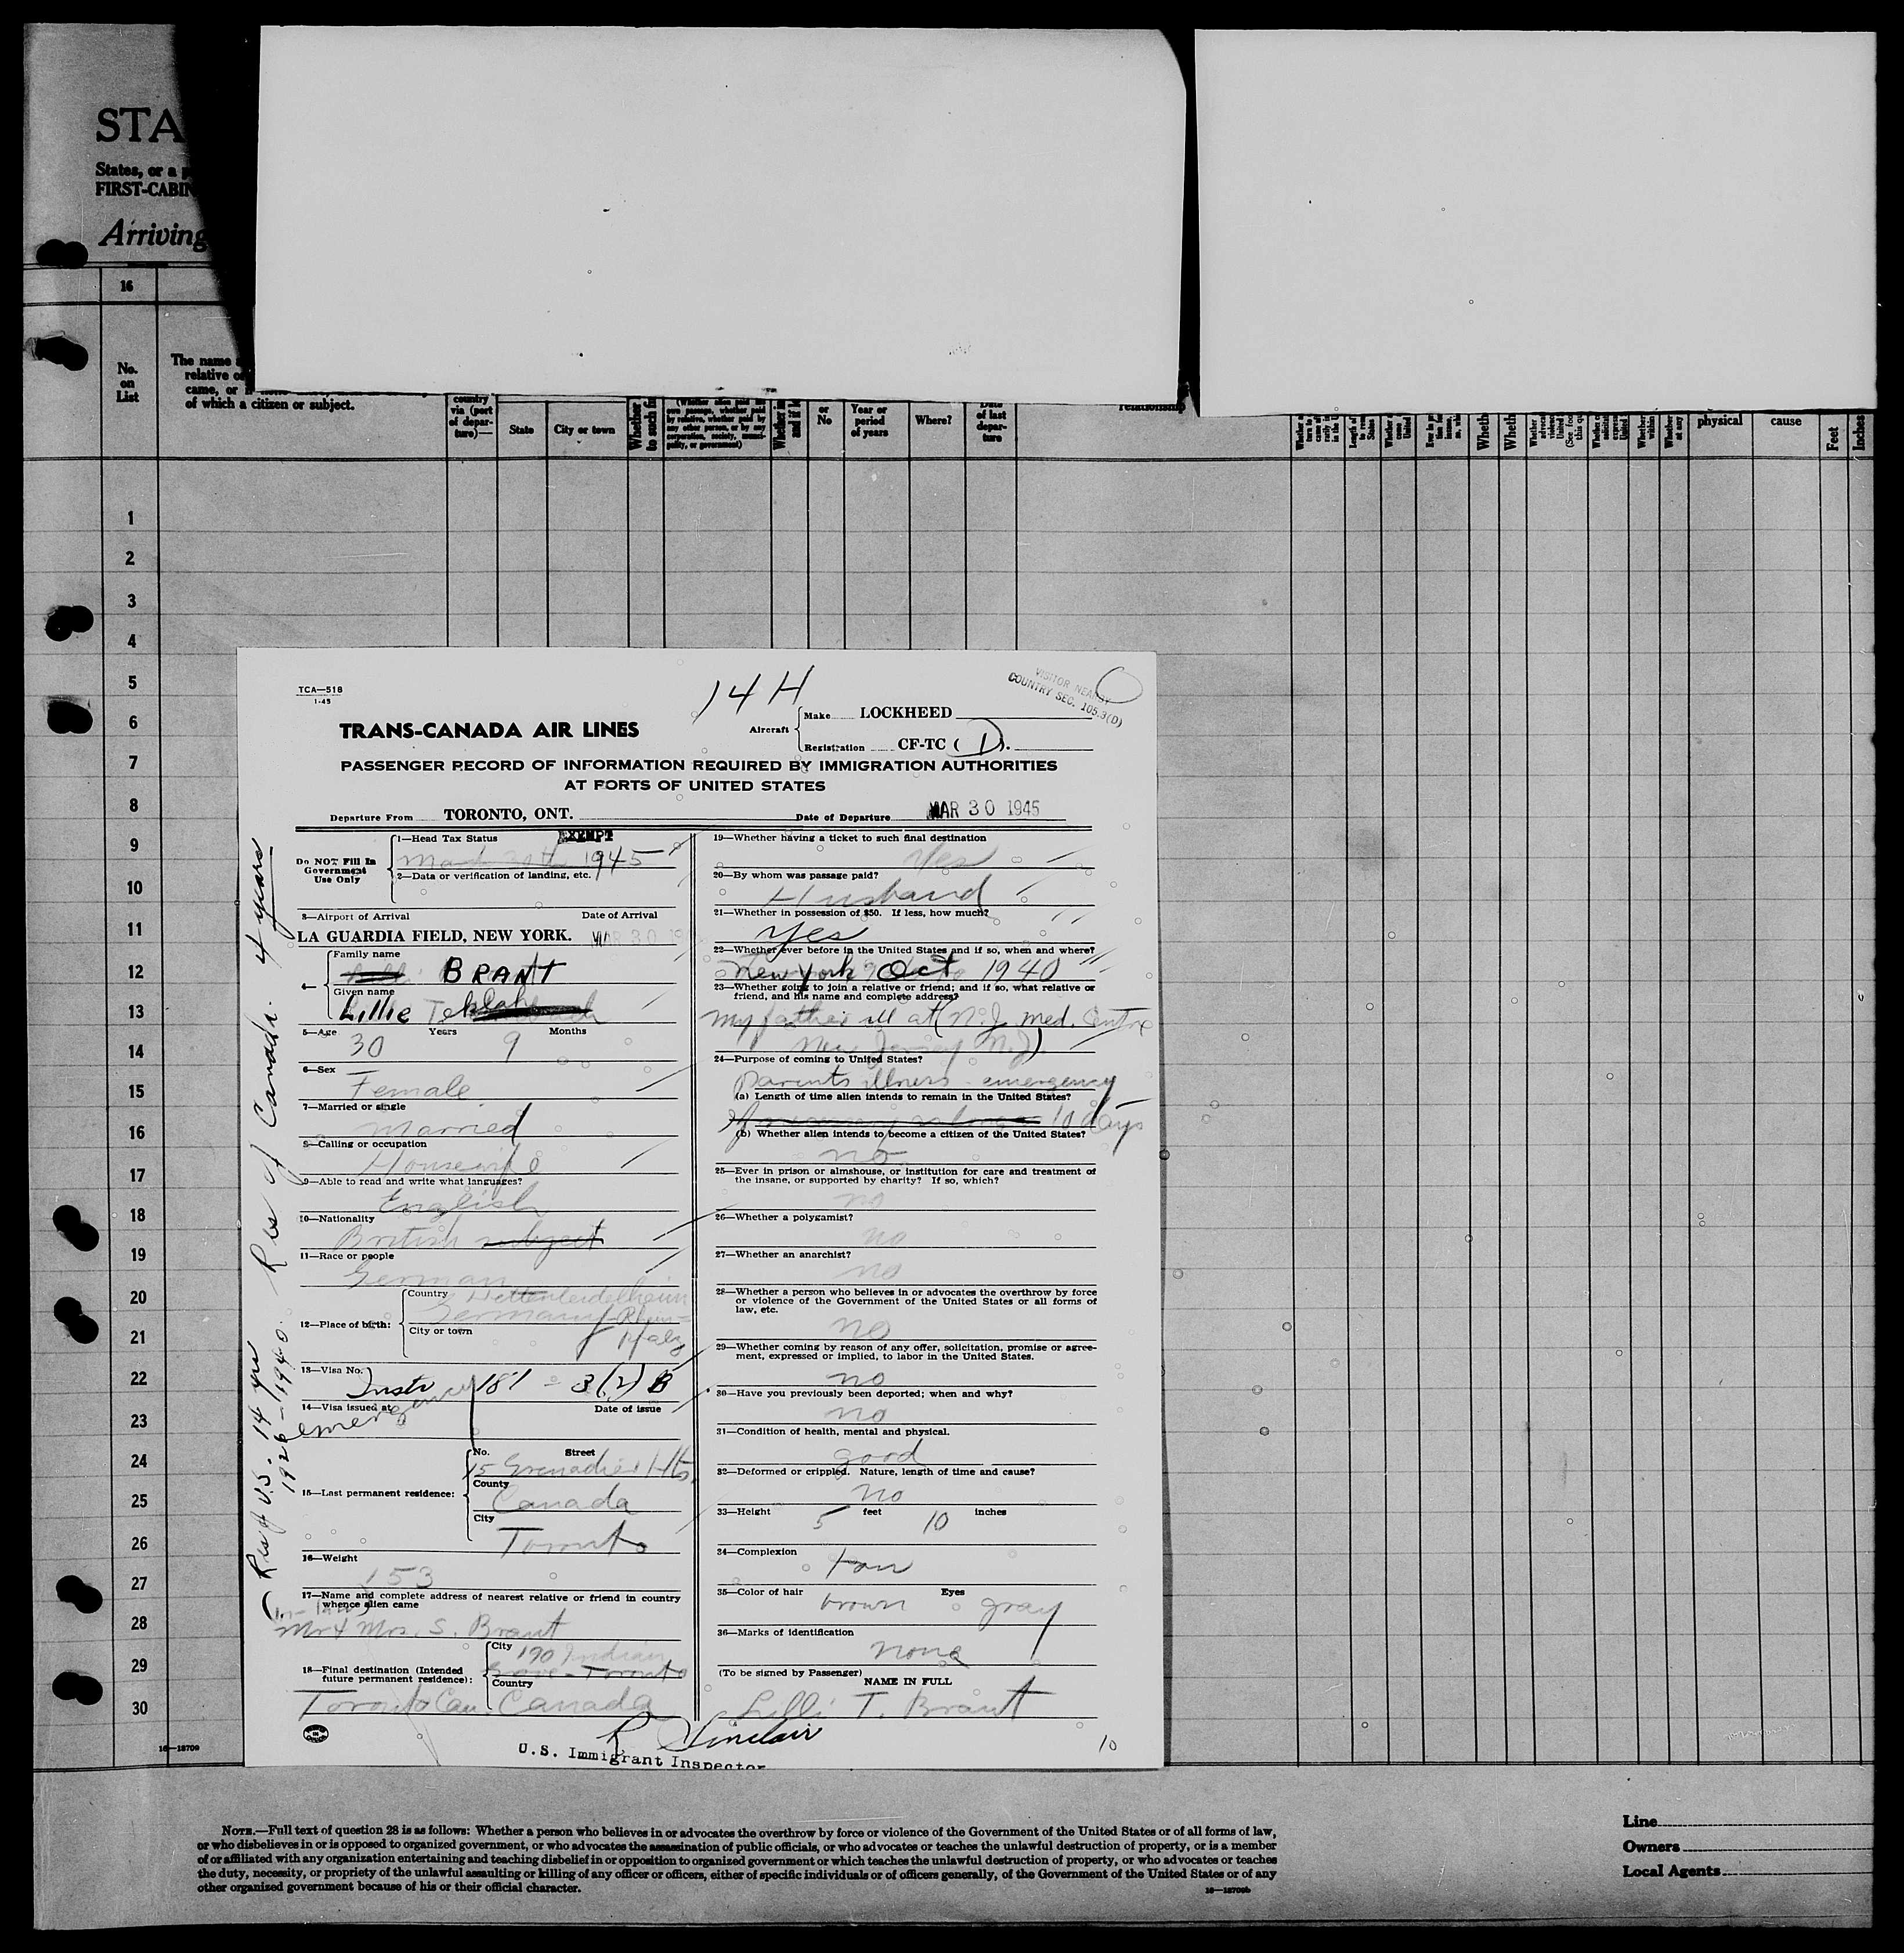 STA
States, or a p
FIRST-CABIN
Arriving
16
No.
on
List
The name
relative or
came, or
of which a citizen or subject.
country
via (port
of depar-
ture)—
State
City or town
Whether
to such fi
(Whether alien paid his
own passage, whether paid
by relative, whether paid by
any other person, or by any
corporation, society, munici-
pality, or government)
or
No
Year or
period
of years
Where?
Date
of last
depar-
ture
relationship
physical
cause
Feet
Inches
1
2
3
4
5
6
7
8
9
10
11
12
13
14
15
16
17
18
19
20
21
22
23
24
25
26
27
28
29
30
16—18709
TCA—518
1-45
14 H
VISITOR NEARBY
COUNTRY SEC. 105.3(D)
TRANS-CANADA AIR LINES
Aircraft
Make LOCKHEED
Registration CF-TC ( 1 ).
PASSENGER RECORD OF INFORMATION REQUIRED BY IMMIGRATION AUTHORITIES
AT PORTS OF UNITED STATES
Departure From TORONTO, ONT.
Date of Departure MAR 30 1945
Do NOT Fill In
Government
Use Only
1—Head Tax Status EXEMPT
1945
2—Data or verification of landing, etc.
3—Airport of Arrival Date of Arrival
LA GUARDIA FIELD, NEW YORK. MAR 30 19
Family name
BRANT
Given name
Lillie
5—Age Years Months
30 9
6—Sex
Female
7—Married or single
Married
8—Calling or occupation
Housewife
9—Able to read and write what languages?
English
10—Nationality
British subject
11—Race or people
German
12—Place of birth:
Country
Germany
City or town
13—Visa No.
Instr 181 - 3(2) B
14—Visa issued at Date of issue
emergency
15—Last permanent residence:
No. Street
15 Grenadier Hts.
County
Canada
City
Toronto
16—Weight
153
17—Name and complete address of nearest relative or friend in country
whence alien came
In-laws
Mr & Mrs. S. Brant
18—Final destination (Intended
future permanent residence):
City
190 Indian
Grove - Toronto
Country
Toronto Can. Canada
Res of U.S. 14 yrs
1926-1940.
Res of Canada. 4 years
19—Whether having a ticket to such final destination
Yes
20—By whom was passage paid?
Husband
21—Whether in possession of $50. If less, how much?
yes
22—Whether ever before in the United States and if so, when and where?
New York Oct 1940
23—Whether going to join a relative or friend; and if so, what relative or
friend, and his name and complete address?
My father ill at (N.J. Med. Centre
New Jersey N.J.)
24—Purpose of coming to United States?
Parents illness - emergency
(a) Length of time alien intends to remain in the United States?
10 days
(b) Whether alien intends to become a citizen of the United States?
no
25—Ever in prison or almshouse, or institution for care and treatment of
the insane, or supported by charity? If so, which?
no
26—Whether a polygamist?
no
27—Whether an anarchist?
no
28—Whether a person who believes in or advocates the overthrow by force
or violence of the Government of the United States or all forms of
law, etc.
no
29—Whether coming by reason of any offer, solicitation, promise or agree-
ment, expressed or implied, to labor in the United States.
no
30—Have you previously been deported; when and why?
no
31—Condition of health, mental and physical.
good
32—Deformed or crippled. Nature, length of time and cause?
no
33—Height 5 feet 10 inches
34—Complexion
35—Color of hair Eyes
brown gray
36—Marks of identification
none
(To be signed by Passenger)
NAME IN FULL
Lilli T. Brant
R Sinclair
U.S. Immigrant Inspector
10
NOTE.—Full text of question 28 is as follows: Whether a person who believes in or advocates the overthrow by force or violence of the Government of the United States or of all forms of law,
or who disbelieves in or is opposed to organized government, or who advocates the assassination of public officials, or who advocates or teaches the unlawful destruction of property, or is a member
of or affiliated with any organization entertaining and teaching disbelief in or opposition to organized government or which teaches the unlawful destruction of property, or who advocates or teaches
the duty, necessity, or propriety of the unlawful assaulting or killing of any officer or officers, either of specific individuals or of officers generally, of the Government of the United States or of any
other organized government because of his or their official character.
16—18709b
Line
Owners
Local Agents